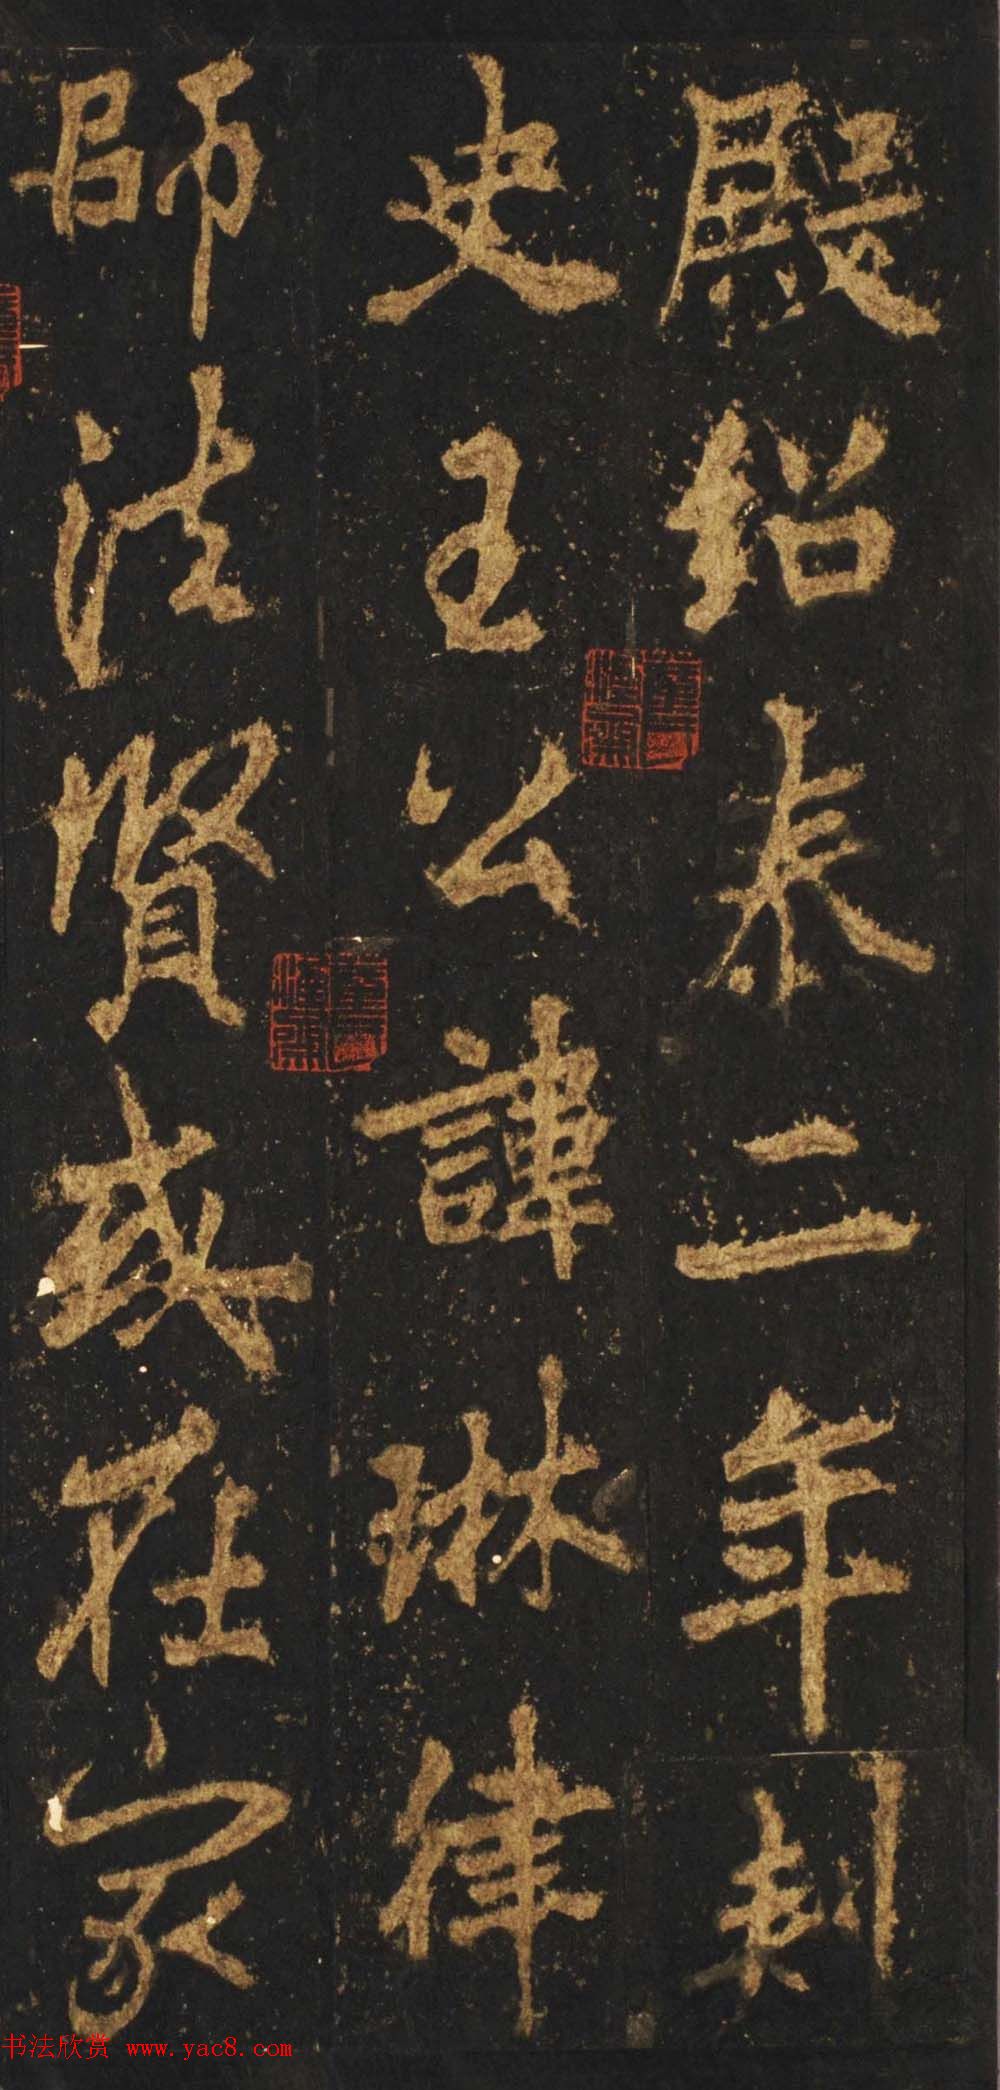 殿紹泰二年刺
史王公諱琳律
師法賢或在家
书法欣赏 www.yac8.com